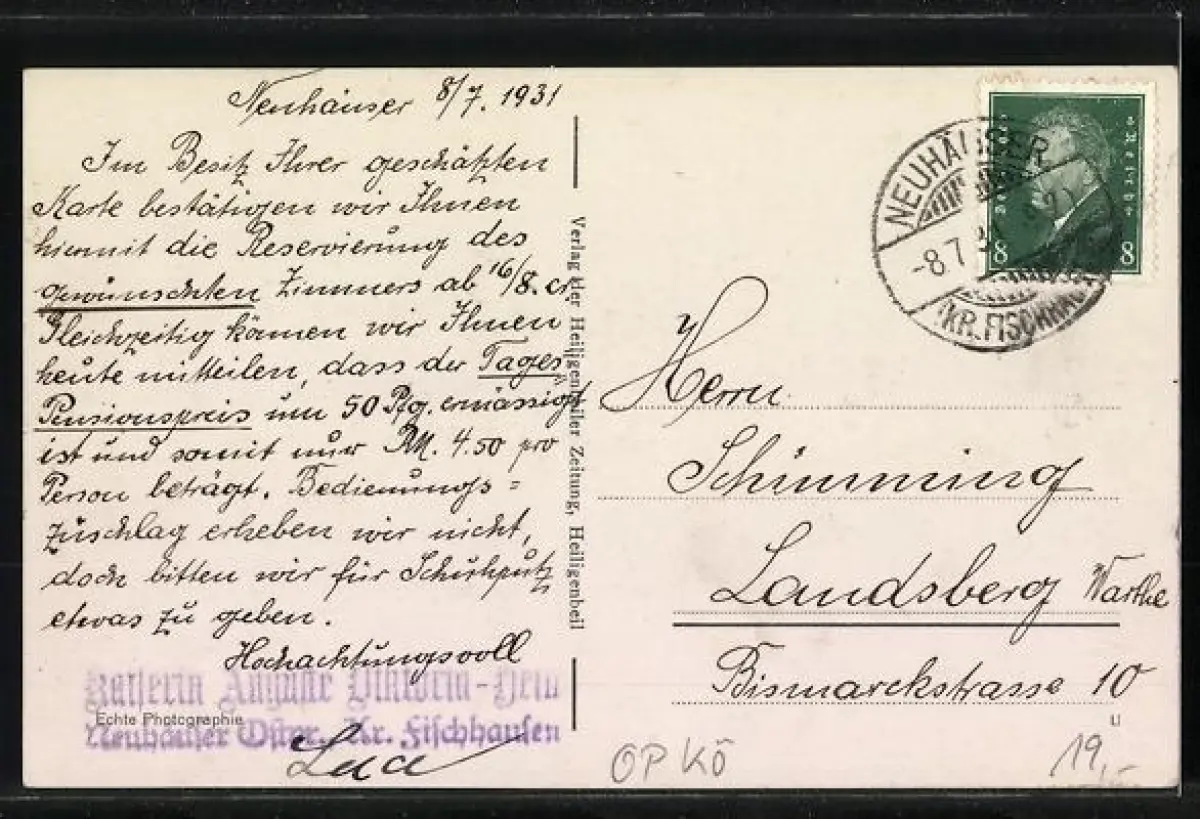 Neuhäuser 8/7. 1931
Im Besitz Ihrer geschätzten
Karte bestätigen wir Ihnen
hiermit die Reservierung des
gewünschten Zimmers ab 16/8. cr.
Gleichzeitig können wir Ihnen
heute mitteilen, dass der Tages
Pensionspreis um 50 Pfg. ermässigt
ist und somit nur RM. 4.50 pro
Person beträgt. Bedienungs=
zuschlag erheben wir nicht,
doch bitten wir für Schuhputz
etwas zu geben.
Hochachtungsvoll
Kaiserin Auguste Viktoria-Heim
Echte Photographie
Neuhäuser Ostpr. Kr. Fischhausen
Verlag der Heiligenbeiler Zeitung, Heiligenbeil
NEUHÄUSER
-8.7
(KR. FISCHHAU
8 8
Herrn
Schimming
Landsberg Warthe
Bismarckstrasse 10
U
OP KÖ
19,-